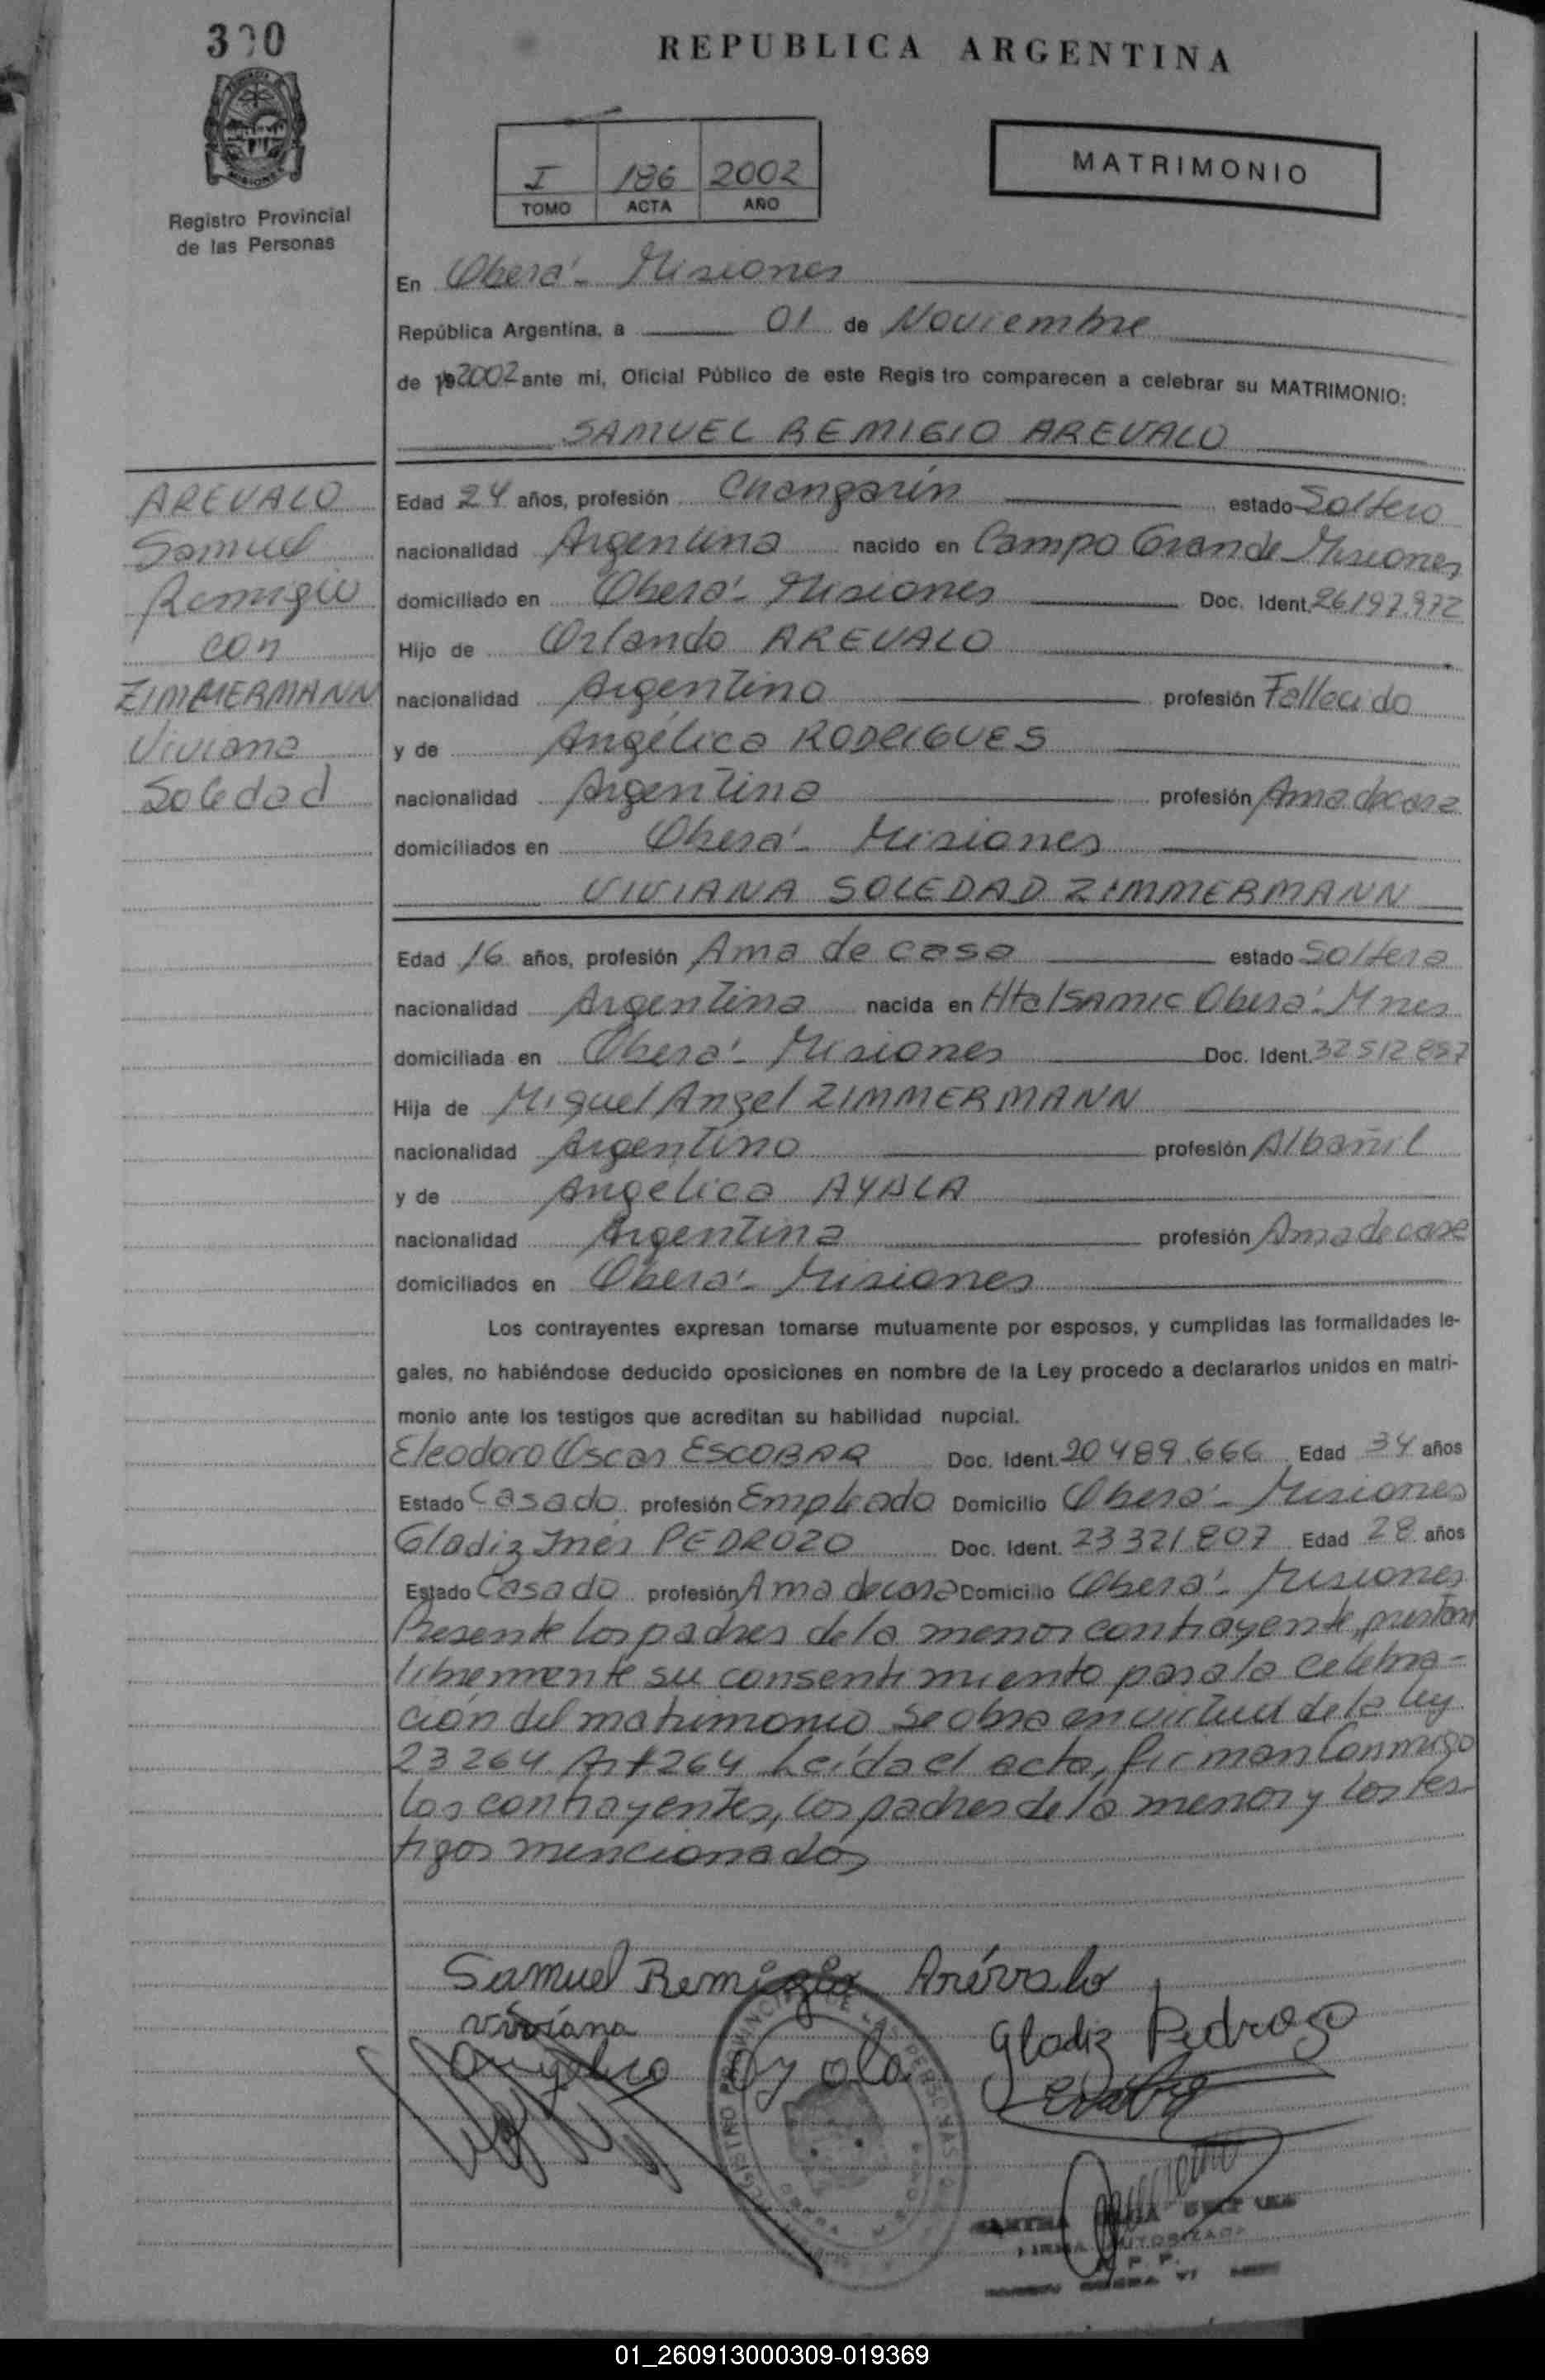 REPUBLICA ARGENTINA
MATRIMONIO
I 186 2002
TOMO ACTA AÑO
Registro Provincial
de las Personas
En Oberá - Misiones
República Argentina, a 01 de Noviembre
de 19 2002 ante mi, Oficial Público de este Regis tro comparecen a celebrar su MATRIMONIO:
SAMUEL REMIGIO AREVALO
AREVALO
Samuel
Remigio
con
ZIMMERMANN
Viviana
Soledad
Edad 24 años, profesión Changarín estado Soltero
nacionalidad Argentina nacido en Campo Grande Misiones
domiciliado en Oberá - Misiones Doc. Ident. 26.197.972
Hijo de Orlando AREVALO
nacionalidad Argentina profesión Fallecido
y de Angélica RODRIGUES
nacionalidad Argentina profesión Ama de casa
domiciliados en Oberá - Misiones
VIVIANA SOLEDAD ZIMMERMANN
Edad 16 años, profesión Ama de casa estado Soltera
nacionalidad Argentina nacida en Htal SAMIC Oberá - Mnes
domiciliada en Oberá - Misiones Doc. Ident.
Hija de Miguel Angel ZIMMERMANN
nacionalidad Argentino profesión Albañil
y de Angélica AYALA
nacionalidad Argentina profesión Ama de casa
domiciliados en Oberá - Misiones
Los contrayentes expresan tomarse mutuamente por esposos, y cumplidas las formalidades le-
gales, no habiéndose deducido oposiciones en nombre de la Ley procedo a declararlos unidos en matri-
monio ante los testigos que acreditan su habilidad nupcial.
Eleodoro Oscar ESCOBAR Doc. Ident. 20.489.666 Edad 34 años
Estado Casado profesión Empleado Domicilio Oberá - Misiones
Gladiz Inés PEDROZO Doc. Ident. 23 321 807 Edad 28 años
Estado Casado profesión Ama de casa Domicilio Oberá - Misiones
Presente los padres de la menor contrayente, prestan
libremente su consentimiento para la celebra-
ción del matrimonio Se obra en virtud de la ley
23264 Art 264 Leída el acta, firman conmigo
los contrayentes, los padres de la menor y los tes-
tigos mencionados
Samuel Remigio Arévalo
Viviana
Gladiz Pedrozo
01_260913000309-019369